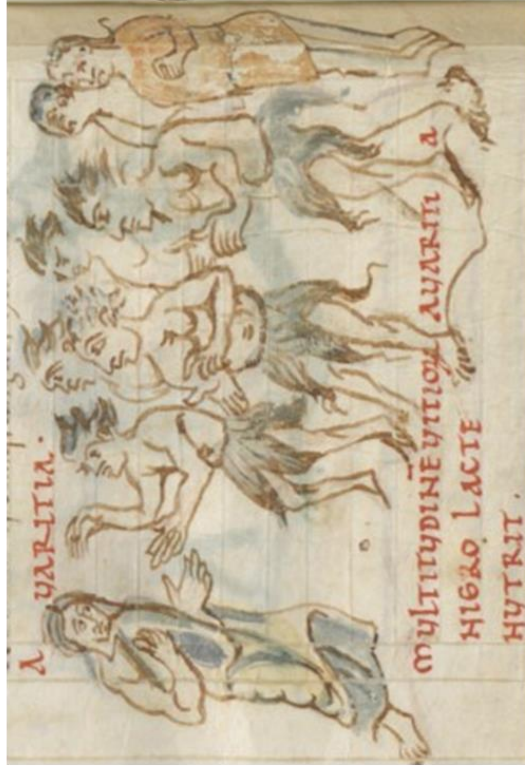 AUARITIA.
MULTITUDINE UITIOR̄ AUARITIA
NIGRO LACTE
NUTRIT.